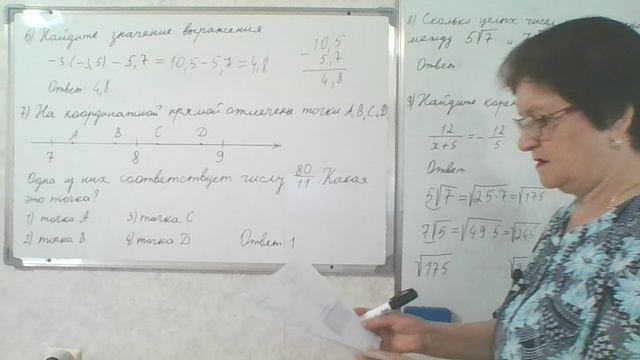 6) Найдите значение выражения
-3·(-3,5) - 5,7 = 10,5 - 5,7 = 4,8
10,5
- 5,7
4,8
Ответ: 4,8
7) На координатной прямой отмечены точки A, B, C, D.
A B C D
7 8 9
Одна из них соответствует числу 80/11. Какая
это точка?
1) точка A 3) точка C
2) точка B 4) точка D Ответ: 1
8) Сколько целых
между 5√7 и
Ответ:
9) Найдите
12/(x+5) = -12/5
Ответ
5√7 = √25·7 = √175
7√5 = √49·5 = √245
√175